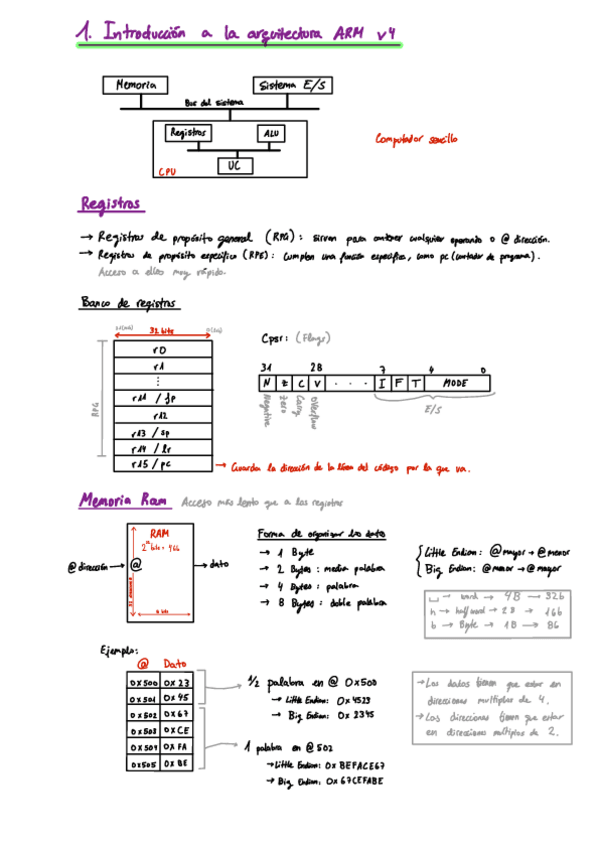 1. Introducción a la arquitectura ARM v4
Memoria
Sistema E/S
Bus del sistema
Registros
ALU
UC
CPU
Computador sencillo
Registros
→ Registros de propósito general (RPG): sirven para contener cualquier operando o @ dirección.
→ Registros de propósito específico (RPE): Cumplen una función específica, como pc (contador de programa).
Acceso a ellos muy rápido.
Banco de registros
32 bits
r0
r1
⋮
r11 / fp
r12
r13 / sp
r14 / lr
r15 / pc
RPG
→ Guarda la dirección de la línea del código por la que va.
Cpsr: (Flags)
31 28 7 4 0
N Z C V . . . I F T MODE
Negative
Zero
Carry
Overflow
E/S
Memoria Ram Acceso más lento que a los registros
RAM
@dirección → @
→ dato
8 bits
Forma de organizar los datos
→ 1 Byte
→ 2 Bytes: media palabra
→ 4 Bytes: palabra
→ 8 Bytes: doble palabra
Little Endian: @mayor → @menor
Big Endian: @menor → @mayor
word → 4B → 32b
h → halfword → 2B → 16b
b → Byte → 1B → 8b
Ejemplo:
@ Dato
0x500 0x23
0x501 0x45
0x502 0x67
0x503 0xCE
0x504 0xFA
0x505 0xBE
1/2 palabra en @ 0x500
→ Little Endian: 0x4523
→ Big Endian: 0x2345
1 palabra en @502
→ Little Endian: 0xBEFACE67
→ Big Endian: 0x67CEFABE
→ Los datos tienen que estar en
direcciones multiplos de 4.
→ Las direcciones tienen que estar
en direcciones multiplos de 2.